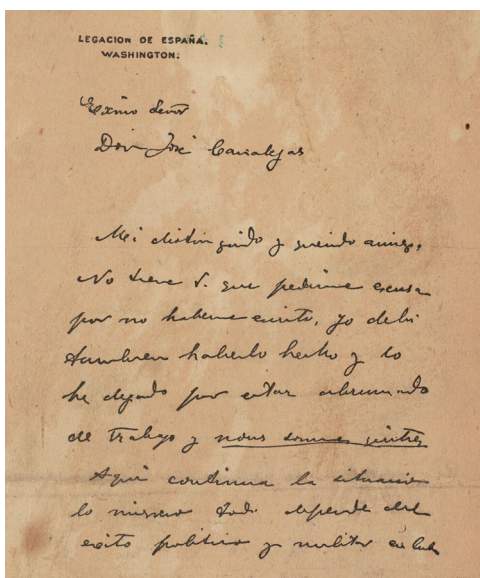 LEGACION DE ESPAÑA.
WASHINGTON.
Exmo Señor
Don José Canalejas
Mi distinguido y querido amigo,
No tiene V. que pedirme escusa
por no haberme escrito, yo debi
tambien haberlo hecho y lo
he dejado por estar abrumado
de trabajo y nous sommes quittes
Aqui continua la situacion
lo mismo Todo depende del
exito politico y militar en Cuba